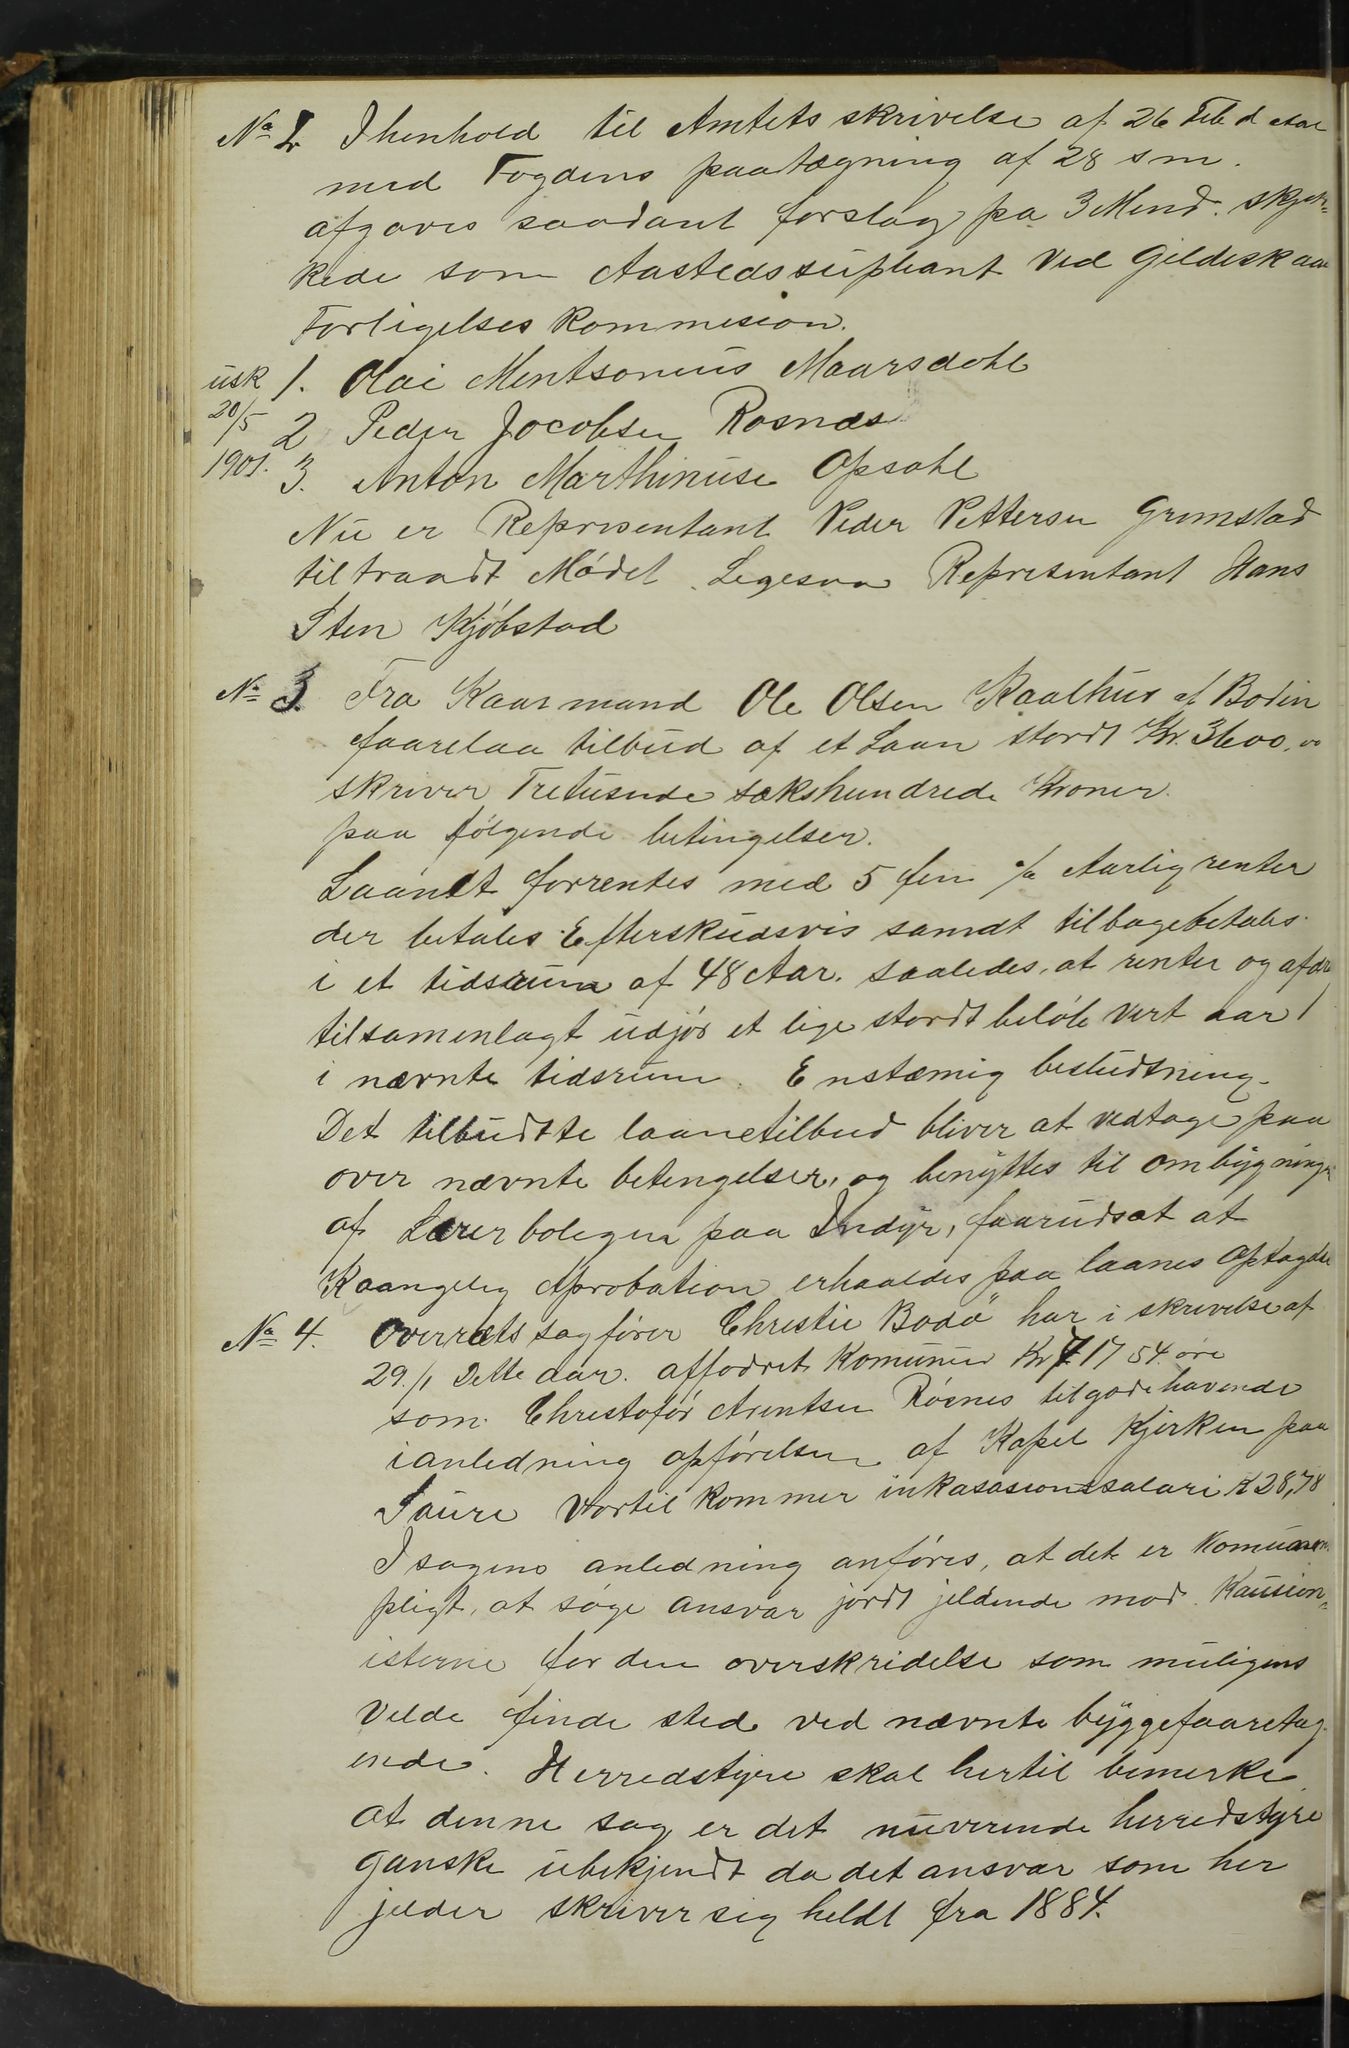 No 2 Ihenhold til Amtets skrivelse af 26 Feb d Aar
med Fogdens paatægning af 28 s m.
afgaves saadant forslag pa 3 Mend. skjøn-
kede som Aastedssupleant Ved Gildeskaar
Forligelses Kommision.
usk 1. Olai Mentsonius Maarsdahl
20/5 2 Peder Jocobsen Rosnæs
1901. 3. Anton Marthinuse Opsahl
Nu er Represontant Peder Pettersen Grimstad
tiltraadt Mødet. Legesaa Representant Hans
Sten Kjøbstad
No 3. Fra Kaarmand Ole Olsen Kaalhus af Bodin
faarelaa tilbud af et Laan stordt Kr. 3600,00
skriver Tretusende sækshundrede Kroner.
paa følgende betingelser.
Laanet forrentes med 5 fem % Aarlig renter
der betales Efterskudsvis samdt tilbagebetales
i et tidsrum af 48 Aar. saaledes, at renter og afdr
tilsamenlagt udjør et lige stordt beløb vert aar
i nævnte tidsrum. Enstæmig besludtning.
Det tilbudtte laanetilbud bliver at vedtage paa
over nævnte betengelser, og benyttes til ombygninger
af Lærerboligen paa Indyr, faarudsat at
Kaangelig Aprobation erhaaldes paa laanes Optagelse
No 4. Overrets sagfører Christie Bodø har i skrivelse af
29./1 Dette aar. affodret Komunen Kr 717 54. øre
som Christofør Arentsen Røsnes tilgodehavende
ianledning opførelsen af Kapel Kjirken paa
Saura Vortil kommer inkasasionssalari Kr 28,78
I sagens anledning anføres, at det er Komunens
pligt, at søge ansvar jordt jeldende mod Kausion-
isterne for den overskridelse som muligens
Vilde finde sted ved nævnte byggefaaretag-
ende. Herredstyre skal hertil bemerke
at denne sag er det nuverende herredstyre
ganske ubekjendt da det ansvar som her
jelder skriver sig heldt fra 1884.